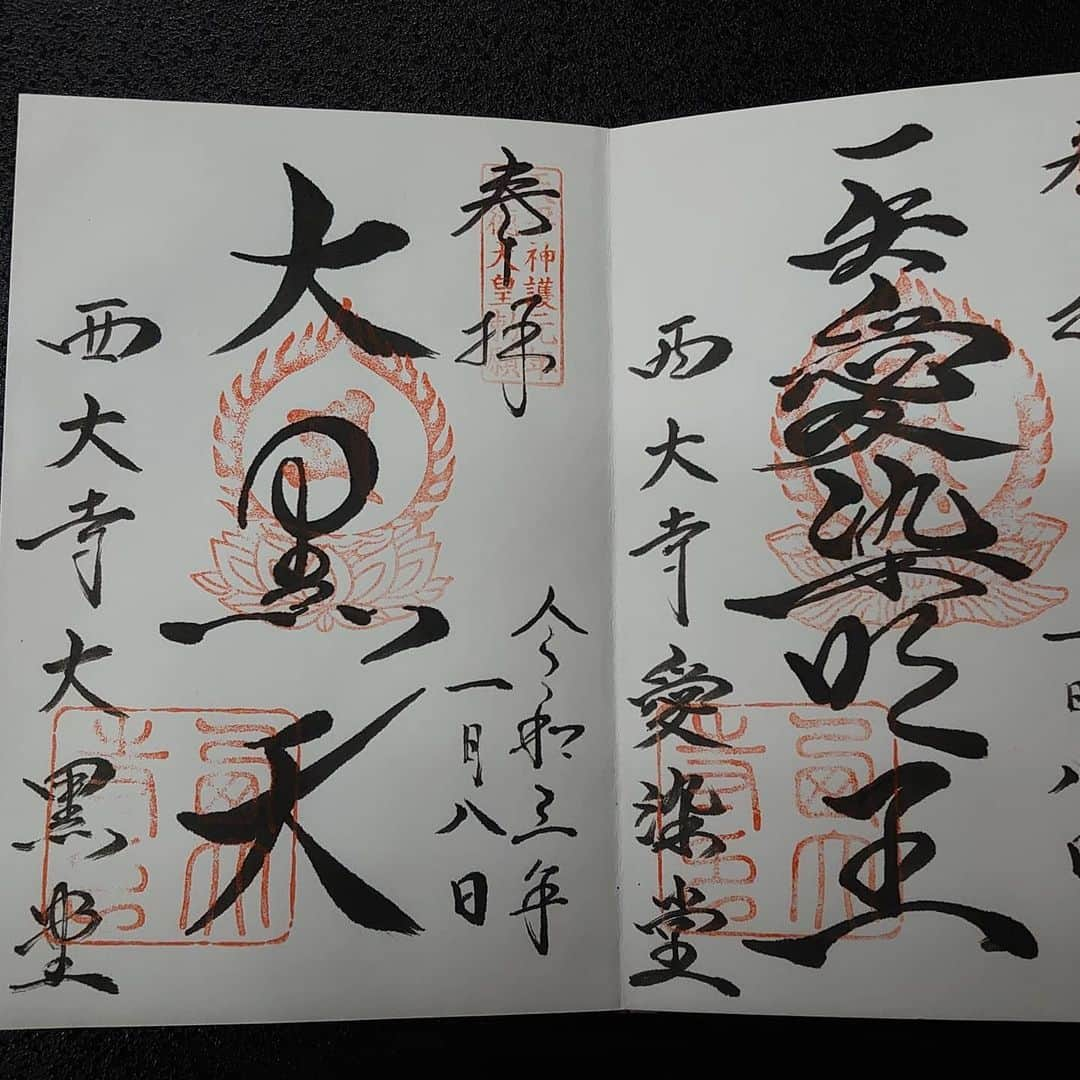 一月八日
愛染明王
西大寺 愛染堂
奉拝
神護元
天皇勅願
令和三年
一月八日
大黒天
西大寺 大黒堂